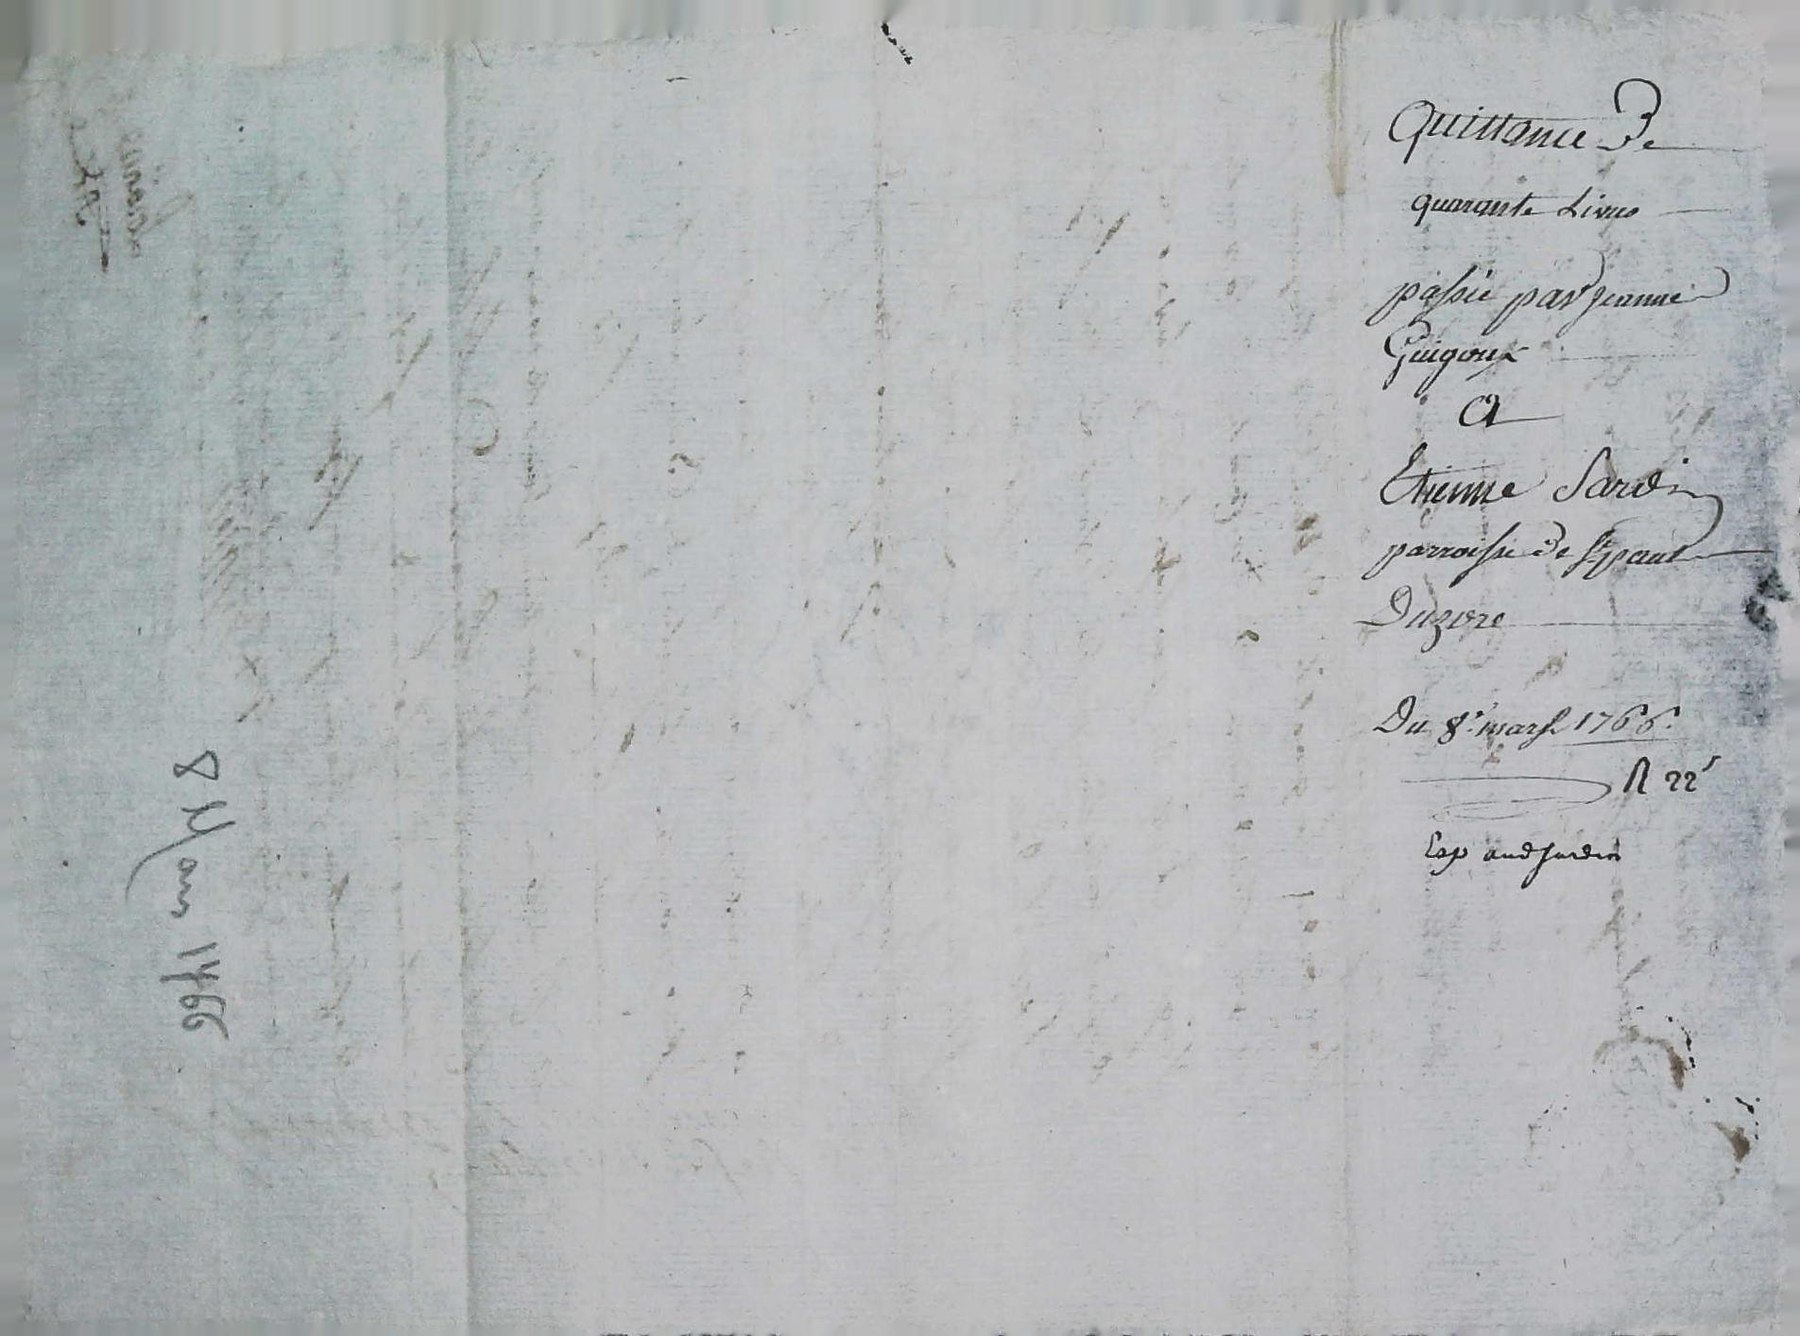 Quittance De
quarante Livres
passée par Jeanne
Guigoux
A
Etienne Jardin
parroisse de St paul
Duzore
Du 8e mars 1766.
R 22s
Exp aud Jardin
8 Mars 1766